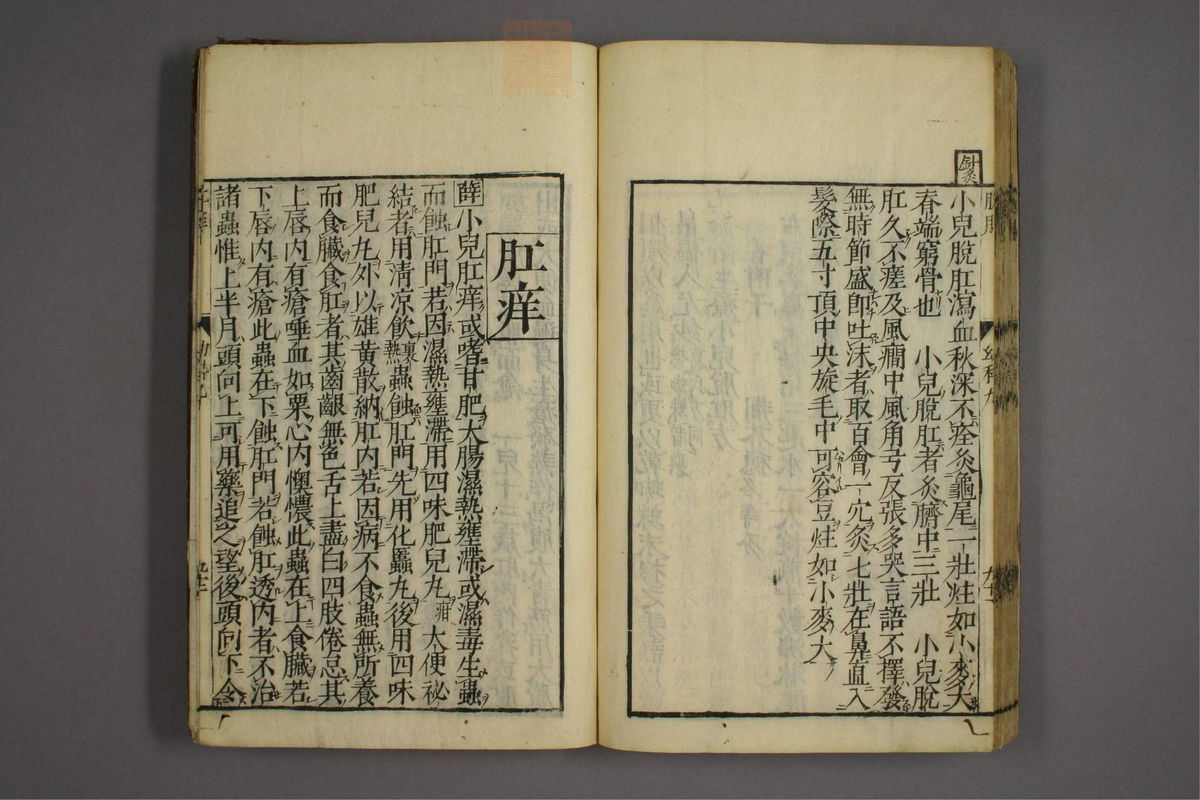 針灸
小兒脫肛瀉血秋深不痊灸龜尾一壯炷如小麥大
春端窮骨也　小兒脫肛者灸臍中三壯　小兒脫
肛久不瘥及風癇中風角弓反張多哭言語不擇發
無時節盛即吐沫者取百會一穴灸七壯在鼻直入
髮際五寸頂中央旋毛中可容豆炷如小麥大
肛痒
薛小兒肛痒或嗜甘肥大腸濕熱壅滯或濕毒生蟲
而蝕肛門若因濕熱壅滯用四味肥兒丸疳大便祕
結者用清凉飲裏熱蟲蝕肛門先用化䘌丸後用四味
肥兒丸外以雄黃散納肛內若因病不食蟲無所養
而食臟食肛者其齒齦無色舌上盡白四肢倦怠其
上唇內有瘡唾血如粟心內懊憹此蟲在上食臟若
下唇內有瘡此蟲在下蝕肛門若蝕肛透內者不治
諸蟲惟上半月頭向上可用藥追之望後頭向下令